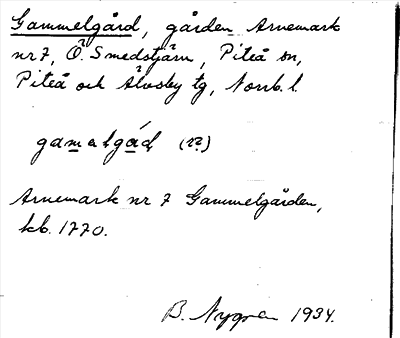 Gammelgård, gården Arnemark
nr 7, Ö. Smedstjärn, Piteå sn,
Piteå och Älvsby tg, Norrb. l.
gamalgáɖ (r?)
Arnemark nr 7 Gammelgården,
kb. 1770.
B. Nygren 1934.